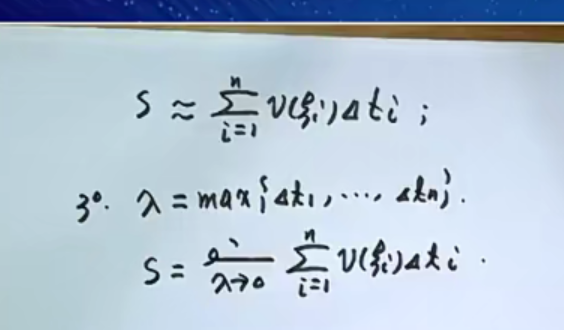 S ≈ ∑_{i=1}^{n} v(ξi)Δti ;
3°. λ = max{Δt1, ..., Δtn}.
S = lim_{λ→0} ∑_{i=1}^{n} v(ξi)Δti .